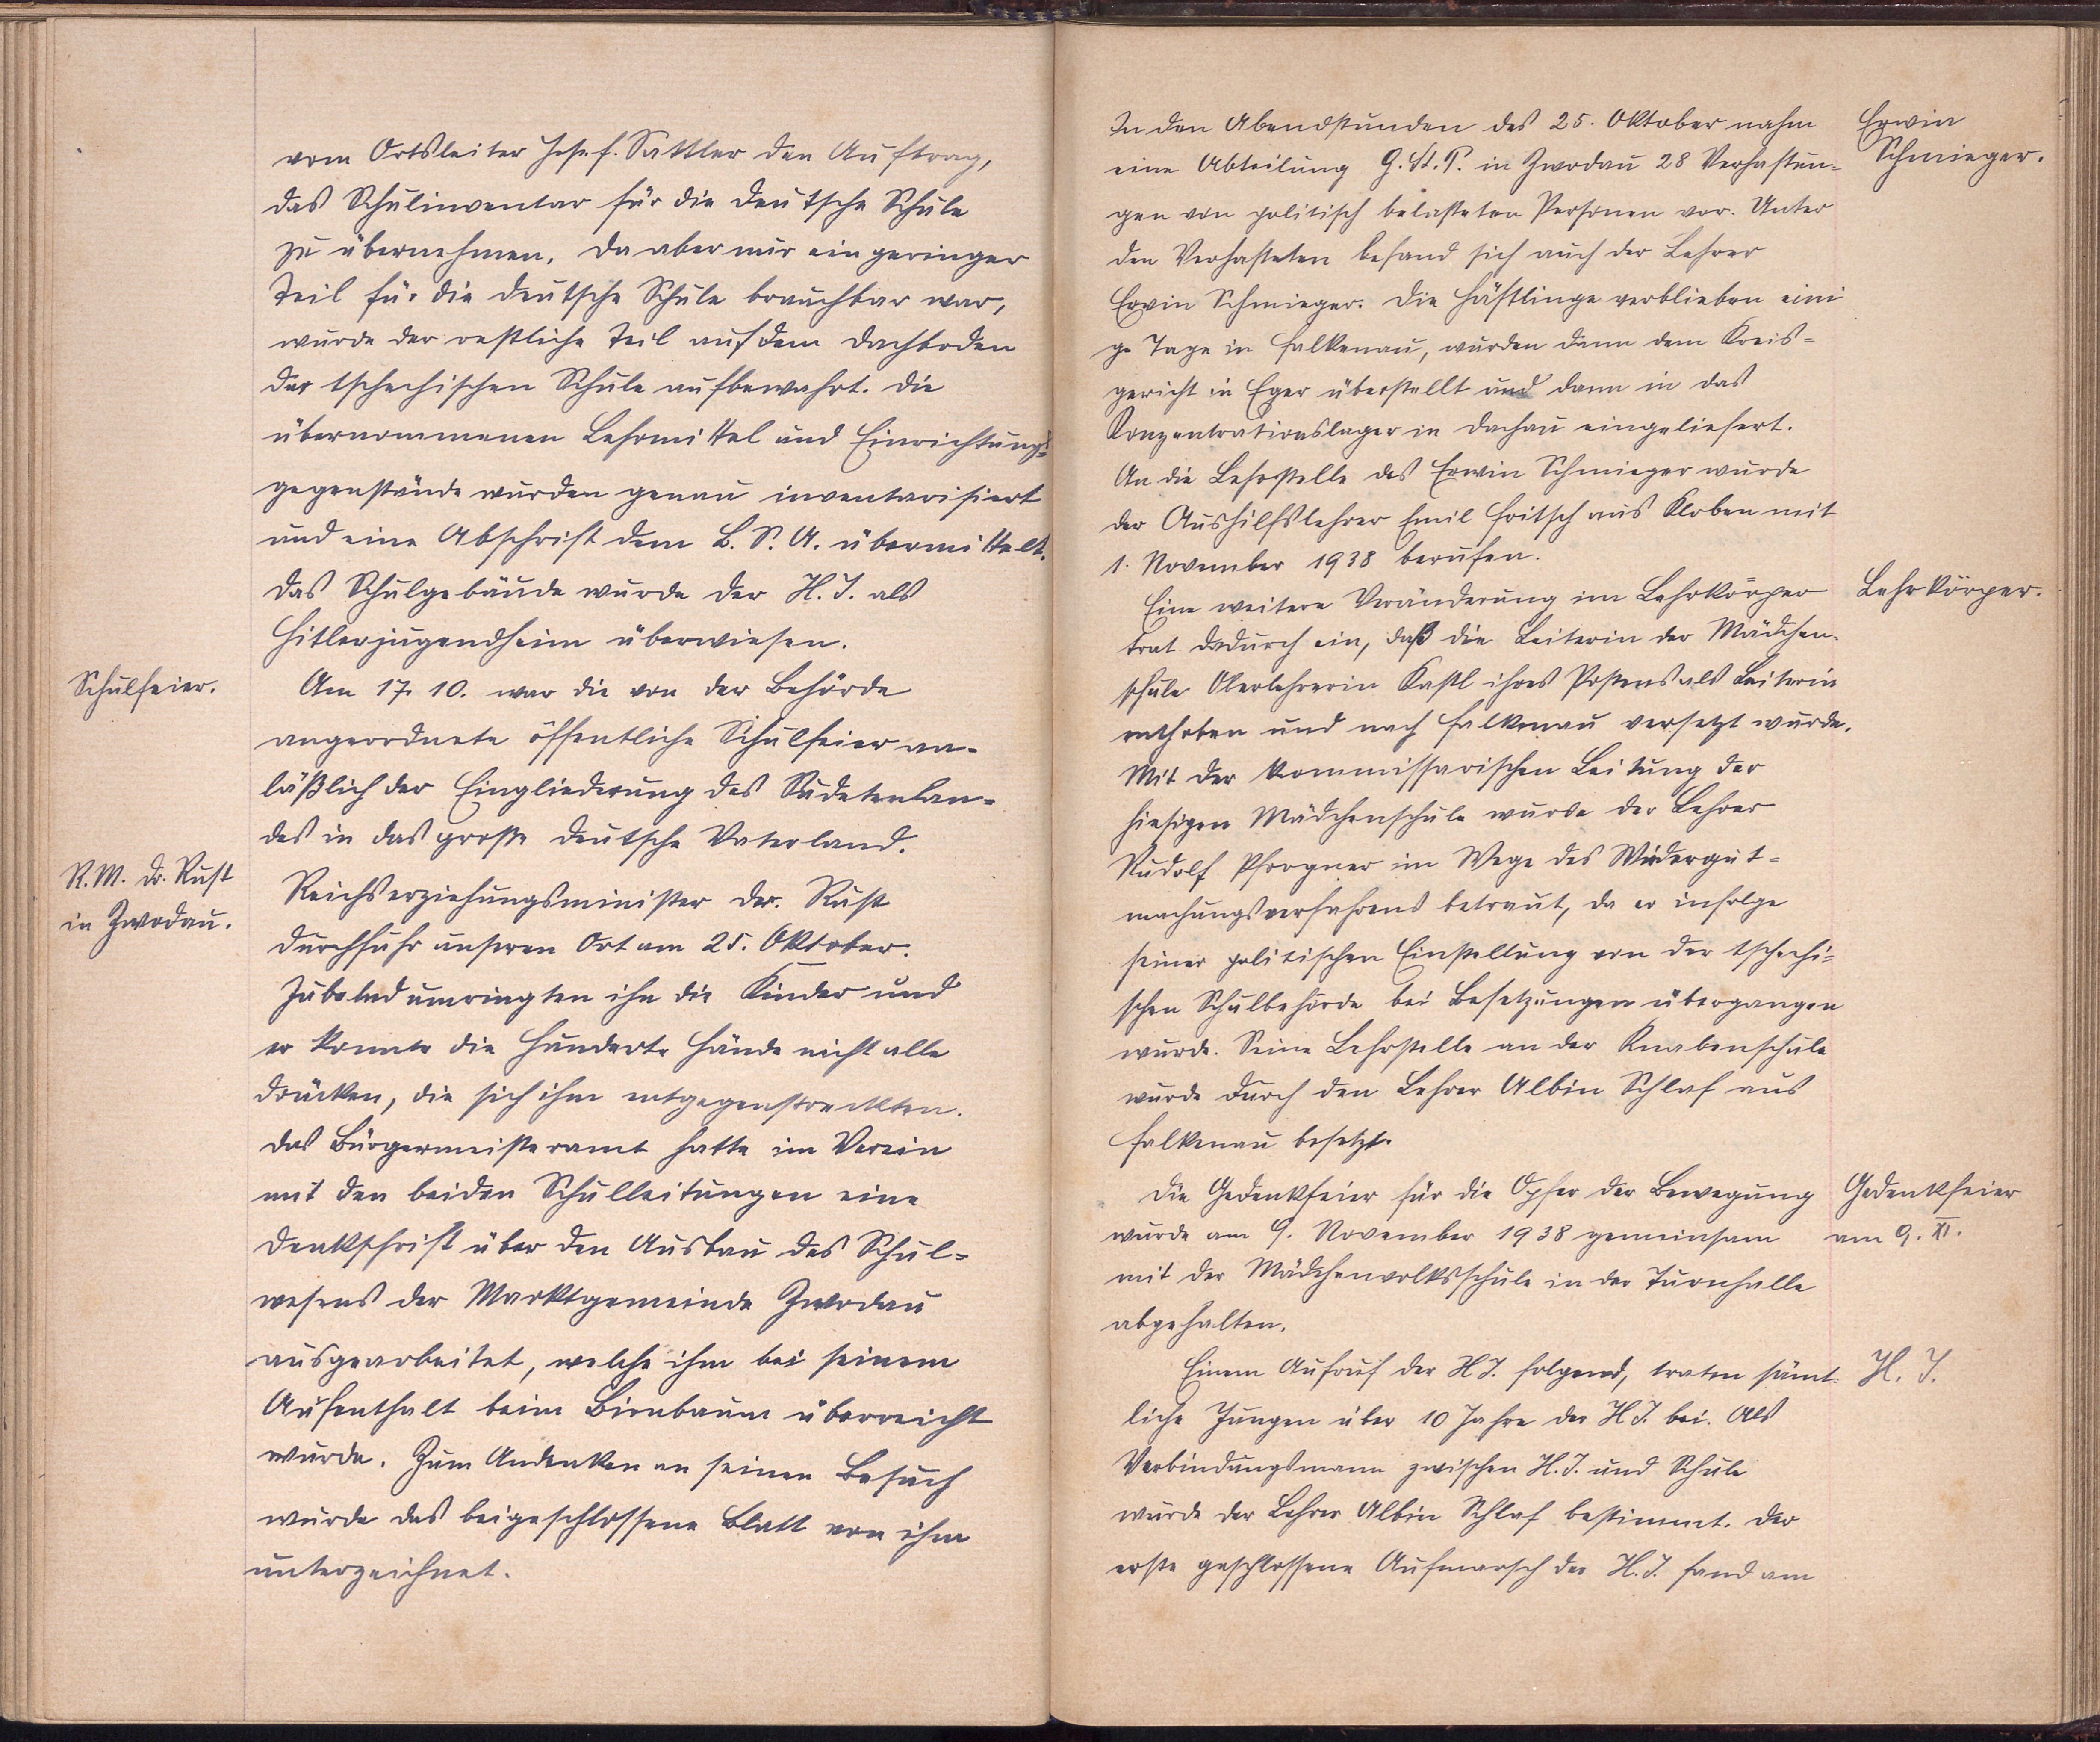 vom Ortsleiter Josef Sattler den Auftrag,
das Schulinventar für die deutsche Schule
zu übernehmen. Da aber nur ein geringer
Teil für die deutsche Schule brauchbar war,
wurde der restliche Teil auf dem Dachboden
der tschechischen Schule aufbewahrt. Die
übernommenen Lehrmittel und Einrichtungs-
gegenstände wurden genau inventarisiert
und eine Abschrift dem B. S. A. übermittelt.
Das Schulgebäude wurde der H. J. als
Hitlerjugendheim überwiesen.
Schulfeier.
Am 17. 10. war die von der Behörde
angeordnete öffentliche Schulfeier an-
läßlich der Eingliederung des Sudetenlan-
des in das große deutsche Vaterland.
R. M. Dr. Rust
in Zwodau.
Reichserziehungsminister Dr. Rust
durchfuhr unseren Ort am 25. Oktober.
Jubelnd umringten ihn die Kinder und
er konnte die hunderte Hände nicht alle
drücken, die sich ihm entgegenstreckten.
Das Bürgermeisteramt hatte im Verein
mit den beiden Schulleitungen eine
Denkschrift über den Ausbau des Schul-
wesens der Marktgemeinde Zwodau
ausgearbeitet, welche ihm bei seinem
Aufenthalt beim Birnbaum überreicht
wurde. Zum Andenken an seinen Besuch
wurde das beigeschlossene Blatt von ihm
unterzeichnet.
In den Abendstunden des 25. Oktober nahm
eine Abteilung G. St. P. in Zwodau 28 Verhaftun-
gen von politisch belasteten Personen vor. Unter
den Verhafteten befand sich auch der Lehrer
Erwin Schmieger. Die Häftlinge verblieben eini
ge Tage in Falkenau, wurden dann dem Kreis-
gericht in Eger überstellt und dann in das
Konzentrationslager in Dachau eingeliefert.
An die Lehrstelle des Erwin Schmieger wurde
der Aushilfslehrer Emil Fritsch aus Kloben mit
1. November 1938 berufen.
Erwin
Schmieger.
Eine weitere Veränderung im Lehrkörper
trat dadurch ein, daß die Leiterin der Mädchen-
schule Oberlehrerin Kastl ihres Postens als Leiterin
enthoben und nach Falkenau versetzt wurde.
Mit der kommissarischen Leitung der
hiesigen Mädchenschule wurde der Lehrer
Rudolf Pfrogner im Wege des Wiedergut-
machungsverfahrens betraut, da er infolge
seiner politischen Einstellung von der tschechi-
schen Schulbehörde bei Besetzungen übergangen
wurde. Seine Lehrstelle an der Knabenschule
wurde durch den Lehrer Albin Schlaf aus
Falkenau besetzt.
Lehrkörper.
Die Gedenkfeier für die Opfer der Bewegung
wurde am 9. November 1938 gemeinsam
mit der Mädchenvolksschule in der Turnhalle
abgehalten.
Gedenkfeier
am 9. XI.
Einem Aufruf der HJ. folgend, traten sämt-
liche Jungen über 10 Jahre der HJ. bei. Als
Verbindungsmann zwischen H. J. und Schule
wurde der Lehrer Albin Schlaf bestimmt. Der
erste geschlossene Aufmarsch der H. J. fand am
H. J.